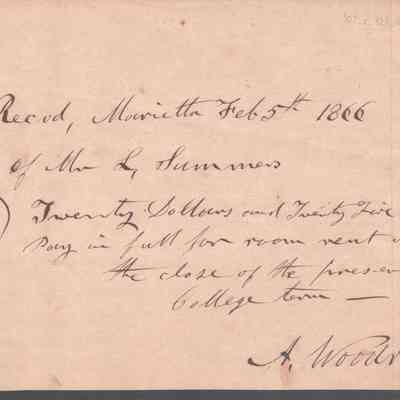 Recvd, Marietta Feb 5th 1866
of Mr L, Summers
Twenty Dollars and Twenty Five
Pay in full for room rent
the close of the presen
College term —
A. Woodr